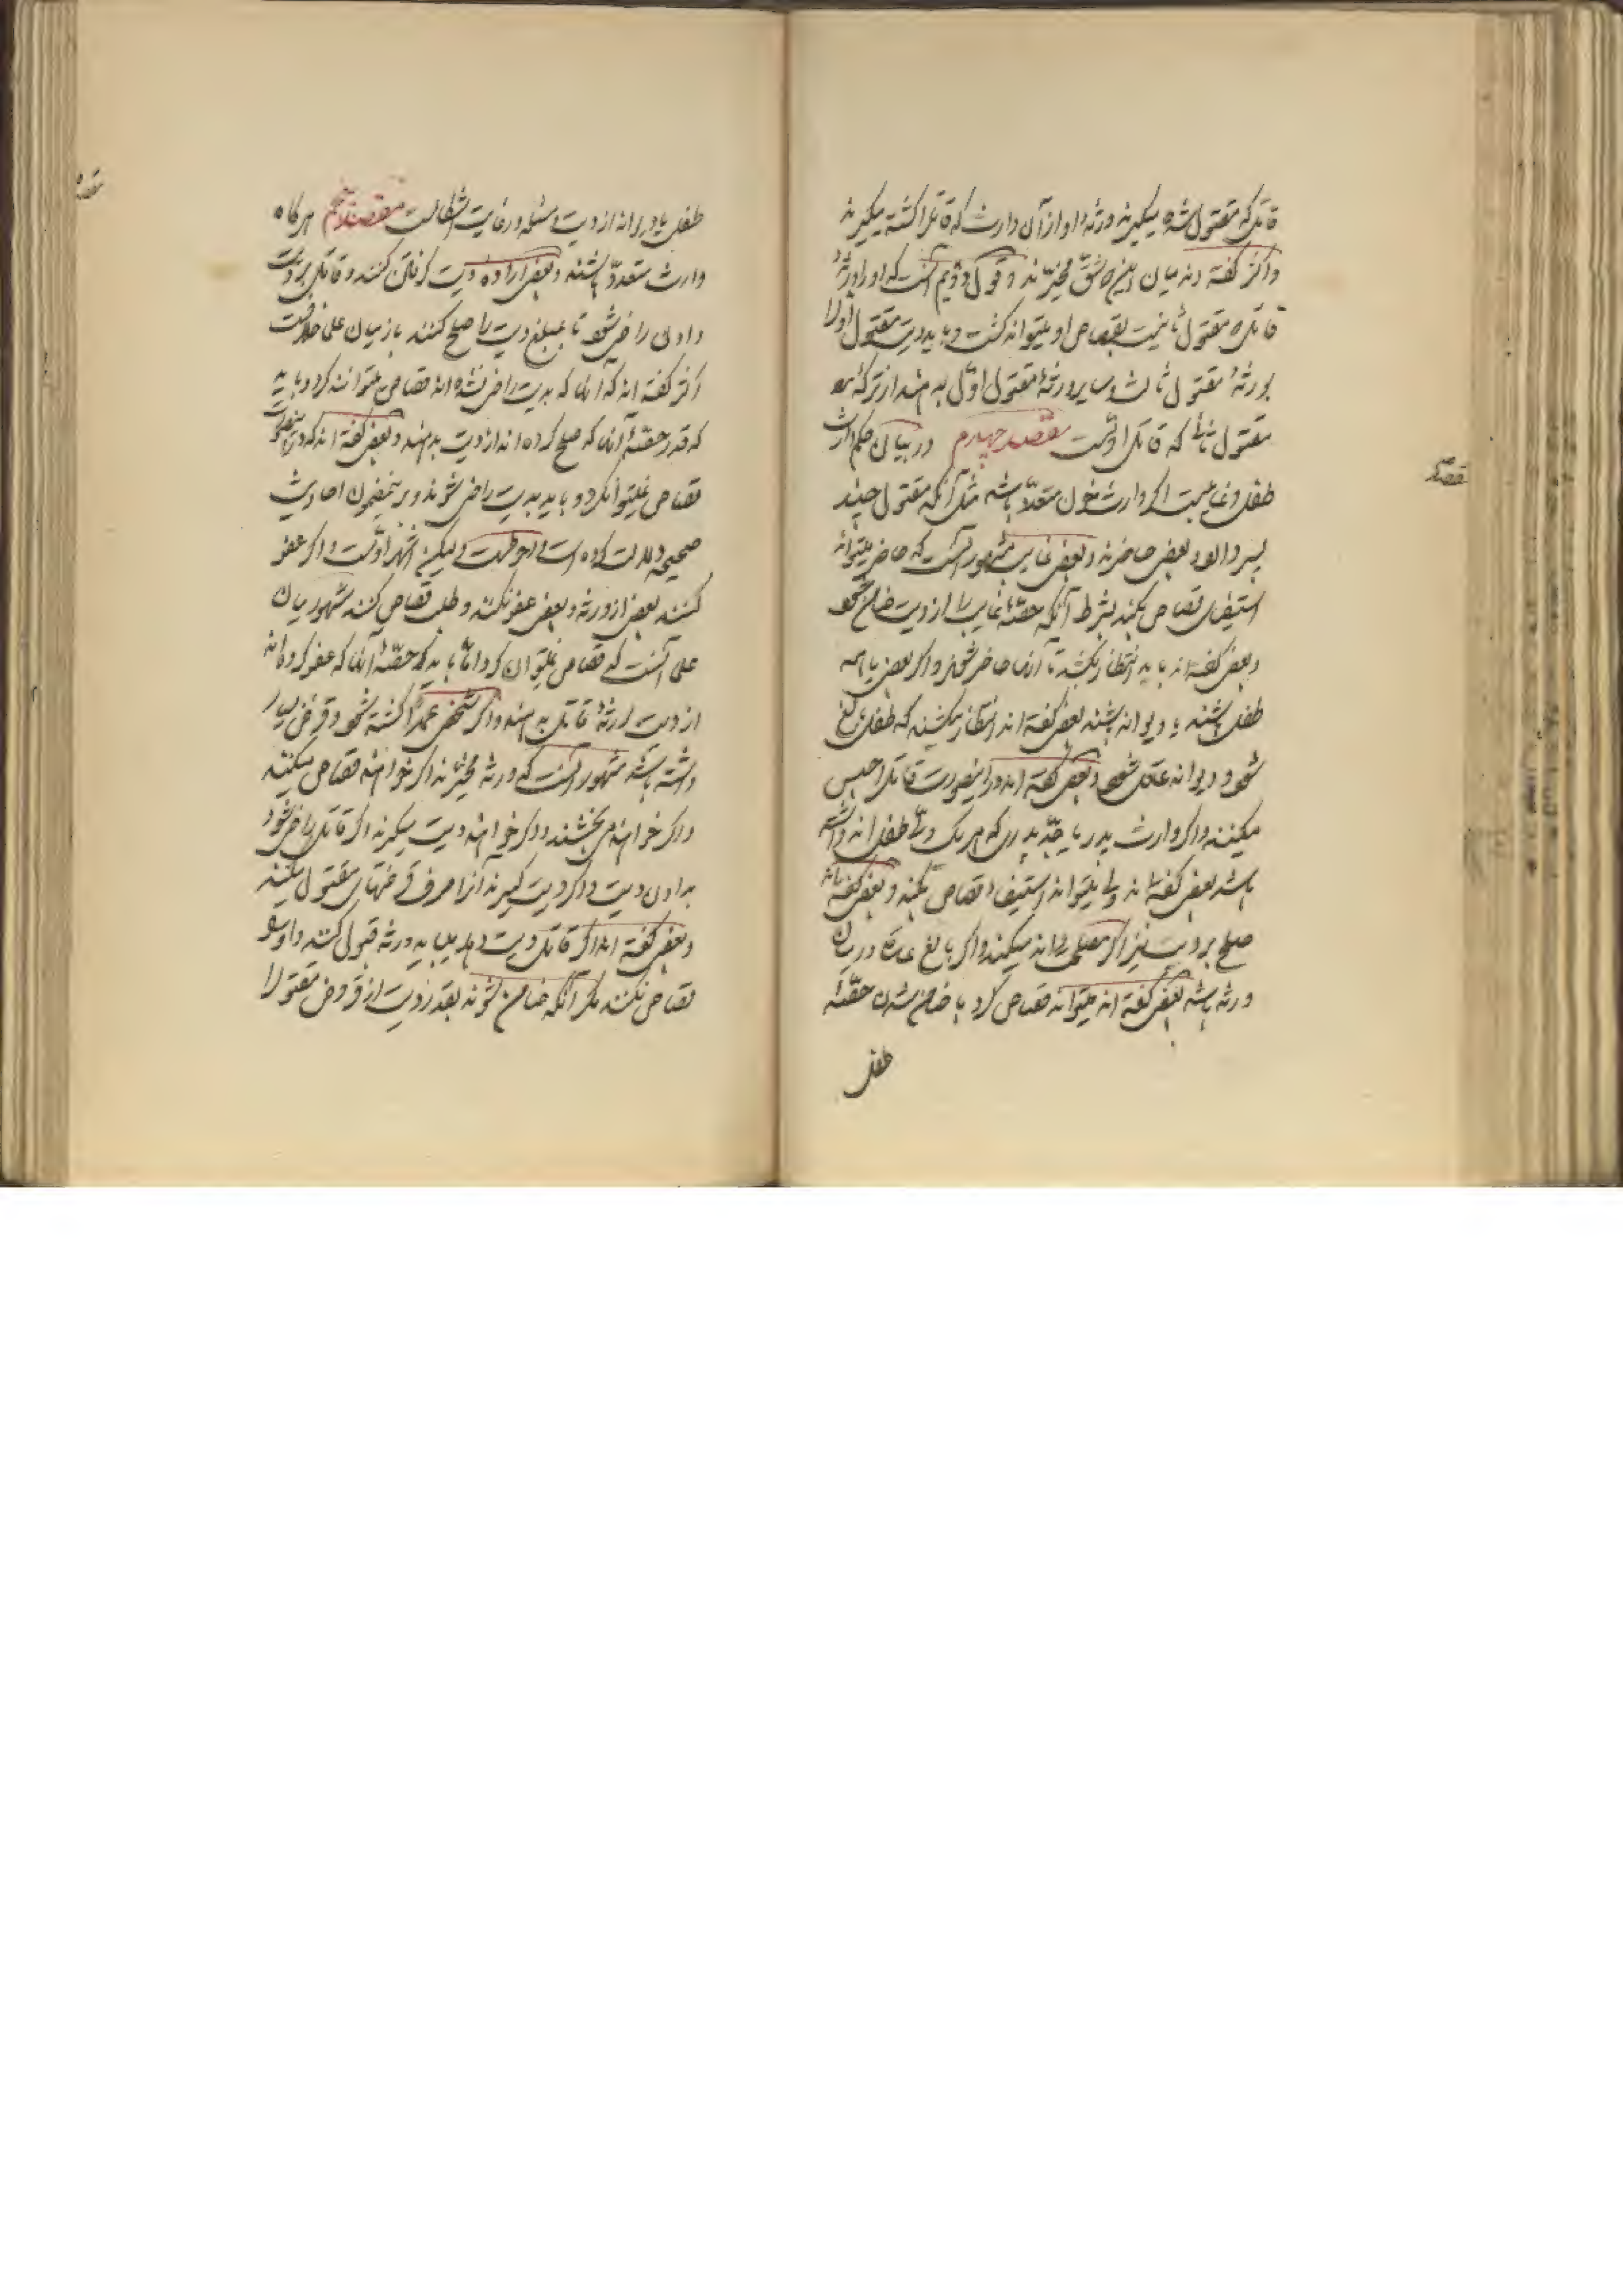 قاتل که مقتول شده میگیرند ورثهٔ او از آن وارث که قاتل را کشته میگیرند
و اکثر گفته‌اند میان این شق مخیرند و قول دویم آنست که او را ورثهٔ
قاتل مقتول ثانیست بقصاص او میتواند کشت و باید دیت مقتول اول را
بورثهٔ مقتول ثالث و سایر ورثهٔ مقتول اول بدهند از ترکهٔ
مقتول ثانی که قاتل اولست مقصد چهارم در بیان حکم وارث
طفل و غایبست اگر وارث خون متعدد باشد مثل آنکه مقتول چند
پسر دارد و بعضی حاضرند و بعضی غایب مشهور آنست که حاضر میتواند
استیفای قصاص بکند بشرط آنکه حصهٔ غایب را از دیت ضامن شود
و بعضی گفته‌اند باید انتظار بکشد تا آنها حاضر شوند و اگر بعضی یا همه
طفل باشند یا دیوانه باشند بعضی گفته‌اند انتظار میکشند که طفل بالغ
شود و دیوانه عاقل شود و بعضی گفته‌اند در اینصورت قاتل را حبس
میکنند و اگر وارث پدر یا جد پدری که هر یک ولی طفل‌اند داشته
باشد بعضی گفته‌اند ولی میتواند استیفاء قصاص بکند و بعضی گفته‌اند
صلح بر دیت نیز اگر مصلحت داند میکند و اگر بالغ عاقلی در میان
ورثه باشد بعضی گفته‌اند میتواند قصاص کرد با ضامن شدن حصهٔ
طفل
طفل یا دیوانه از دیت و مسئله در غایت اشکالست مقصد پنجم هر گاه
وارث متعدد باشند و بعضی ارادهٔ دیت گرفتن کنند و قاتل بر دیت
دادن راضی شود تا بمبلغ دیت را صلح کنند باز میان علما خلافست
اکثر گفته‌اند که آنها که بدیت راضی نشده‌اند قصاص میتوانند کرد و باید
که قدر حصهٔ آنها که صلح کرده‌اند از دیت بدهند و بعضی گفته‌اند که درینصورت
قصاص نمیتوان کرد و باید بدیت راضی شوند و بر اینمضمون احادیث
صحیحه دلالت کرده است و احوطست و لیکن اشهر اولست و اگر عفو
کنند بعضی از ورثه و بعضی عفو نکنند و طلب قصاص کنند مشهور میان
علما آنست که قصاص میتوان کرد اما باید که حصهٔ آنها که عفو کرده‌اند
از دیت بورثهٔ قاتل بدهند و اگر شخصی عمدا کشته شود و قرض بسیار
داشته باشد مشهور آنست که ورثه مخیرند اگر خواهند قصاص میکنند
و اگر خواهند میبخشند و اگر خواهند دیت میگیرند اگر قاتل راضی شود
بدادن دیت و اگر دیت گیرند آنرا صرف قرضهای مقتول میکنند
و بعضی گفته‌اند اگر قاتل دیت دهد میباید ورثه قبول کنند و او را
قصاص نکنند مگر آنکه ضامن شوند بقدر دیت از قروض مقتول را